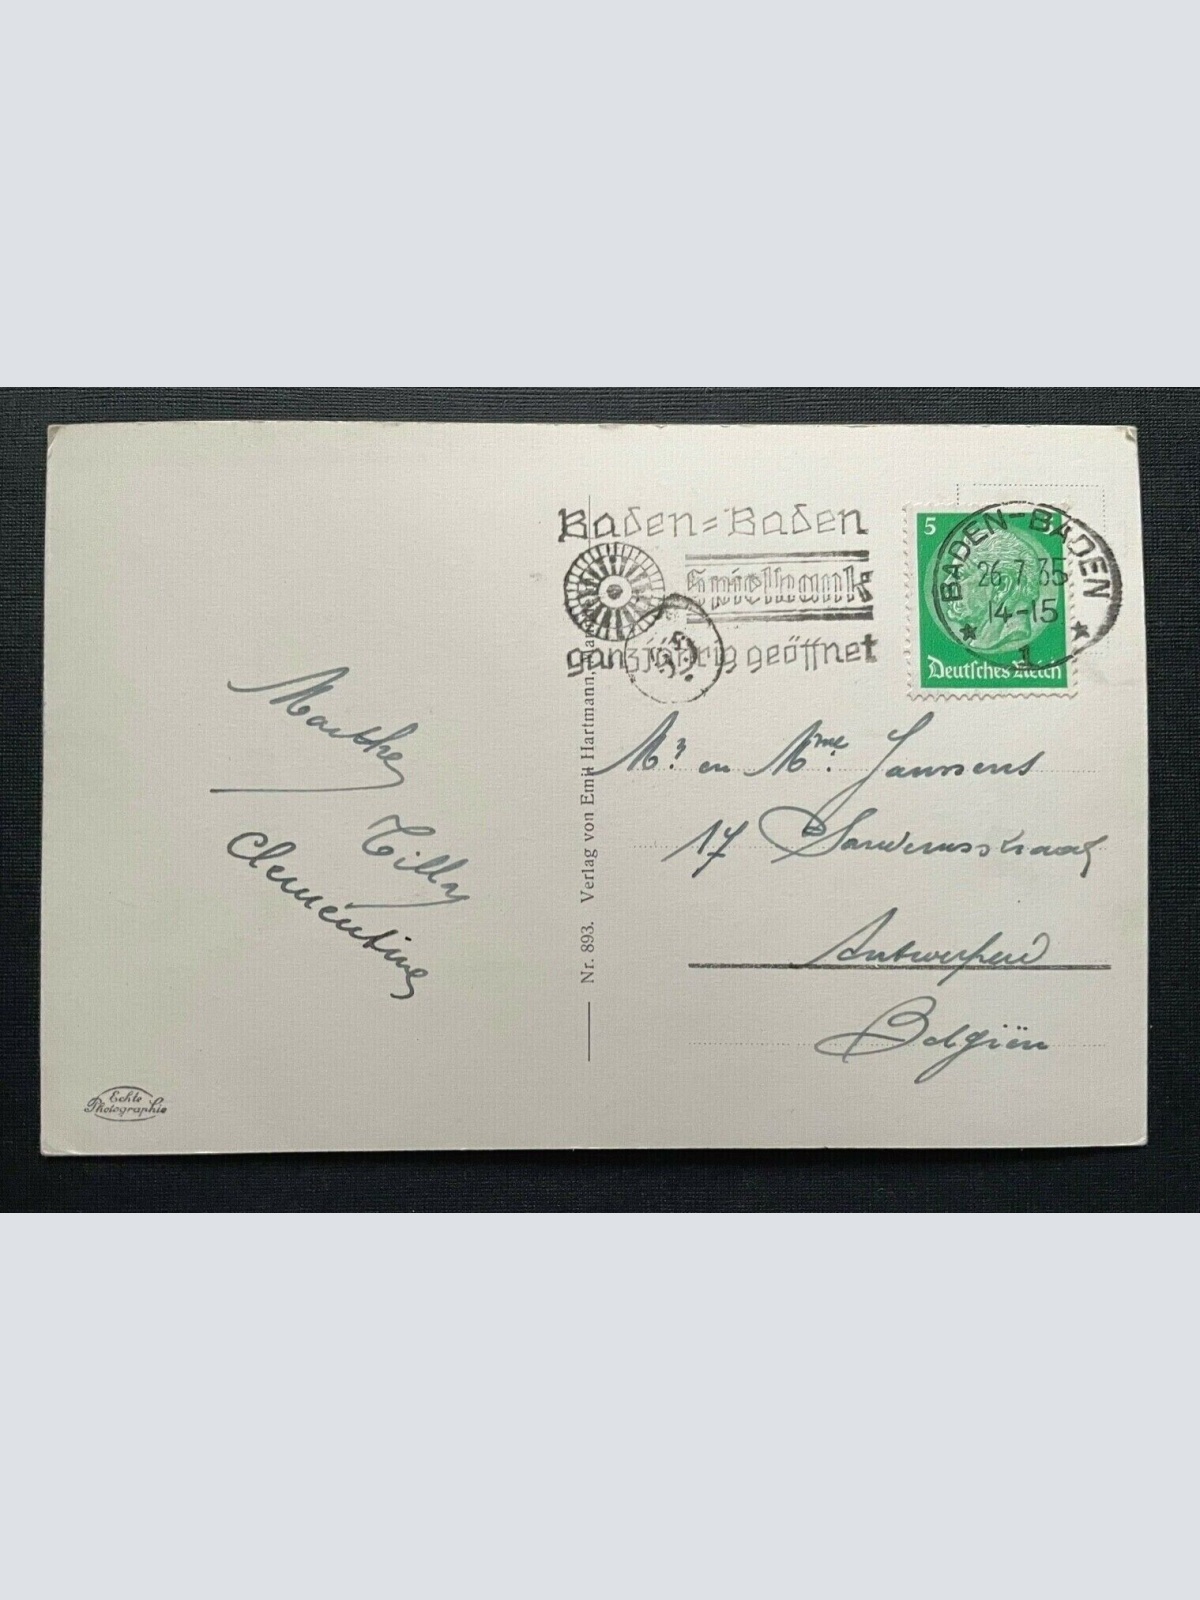 Baden=Baden
Spielbank
ganzjährig geöffnet
5
Deutsches Reich
BADEN-BADEN
26.7.35
14-15
1
Marthe
Tilly
Clementine
Nr. 893. Verlag von Emil Hartmann,
Mr en Mme Janssens
17
Antwerpen
Belgiën
Echte
Photographie